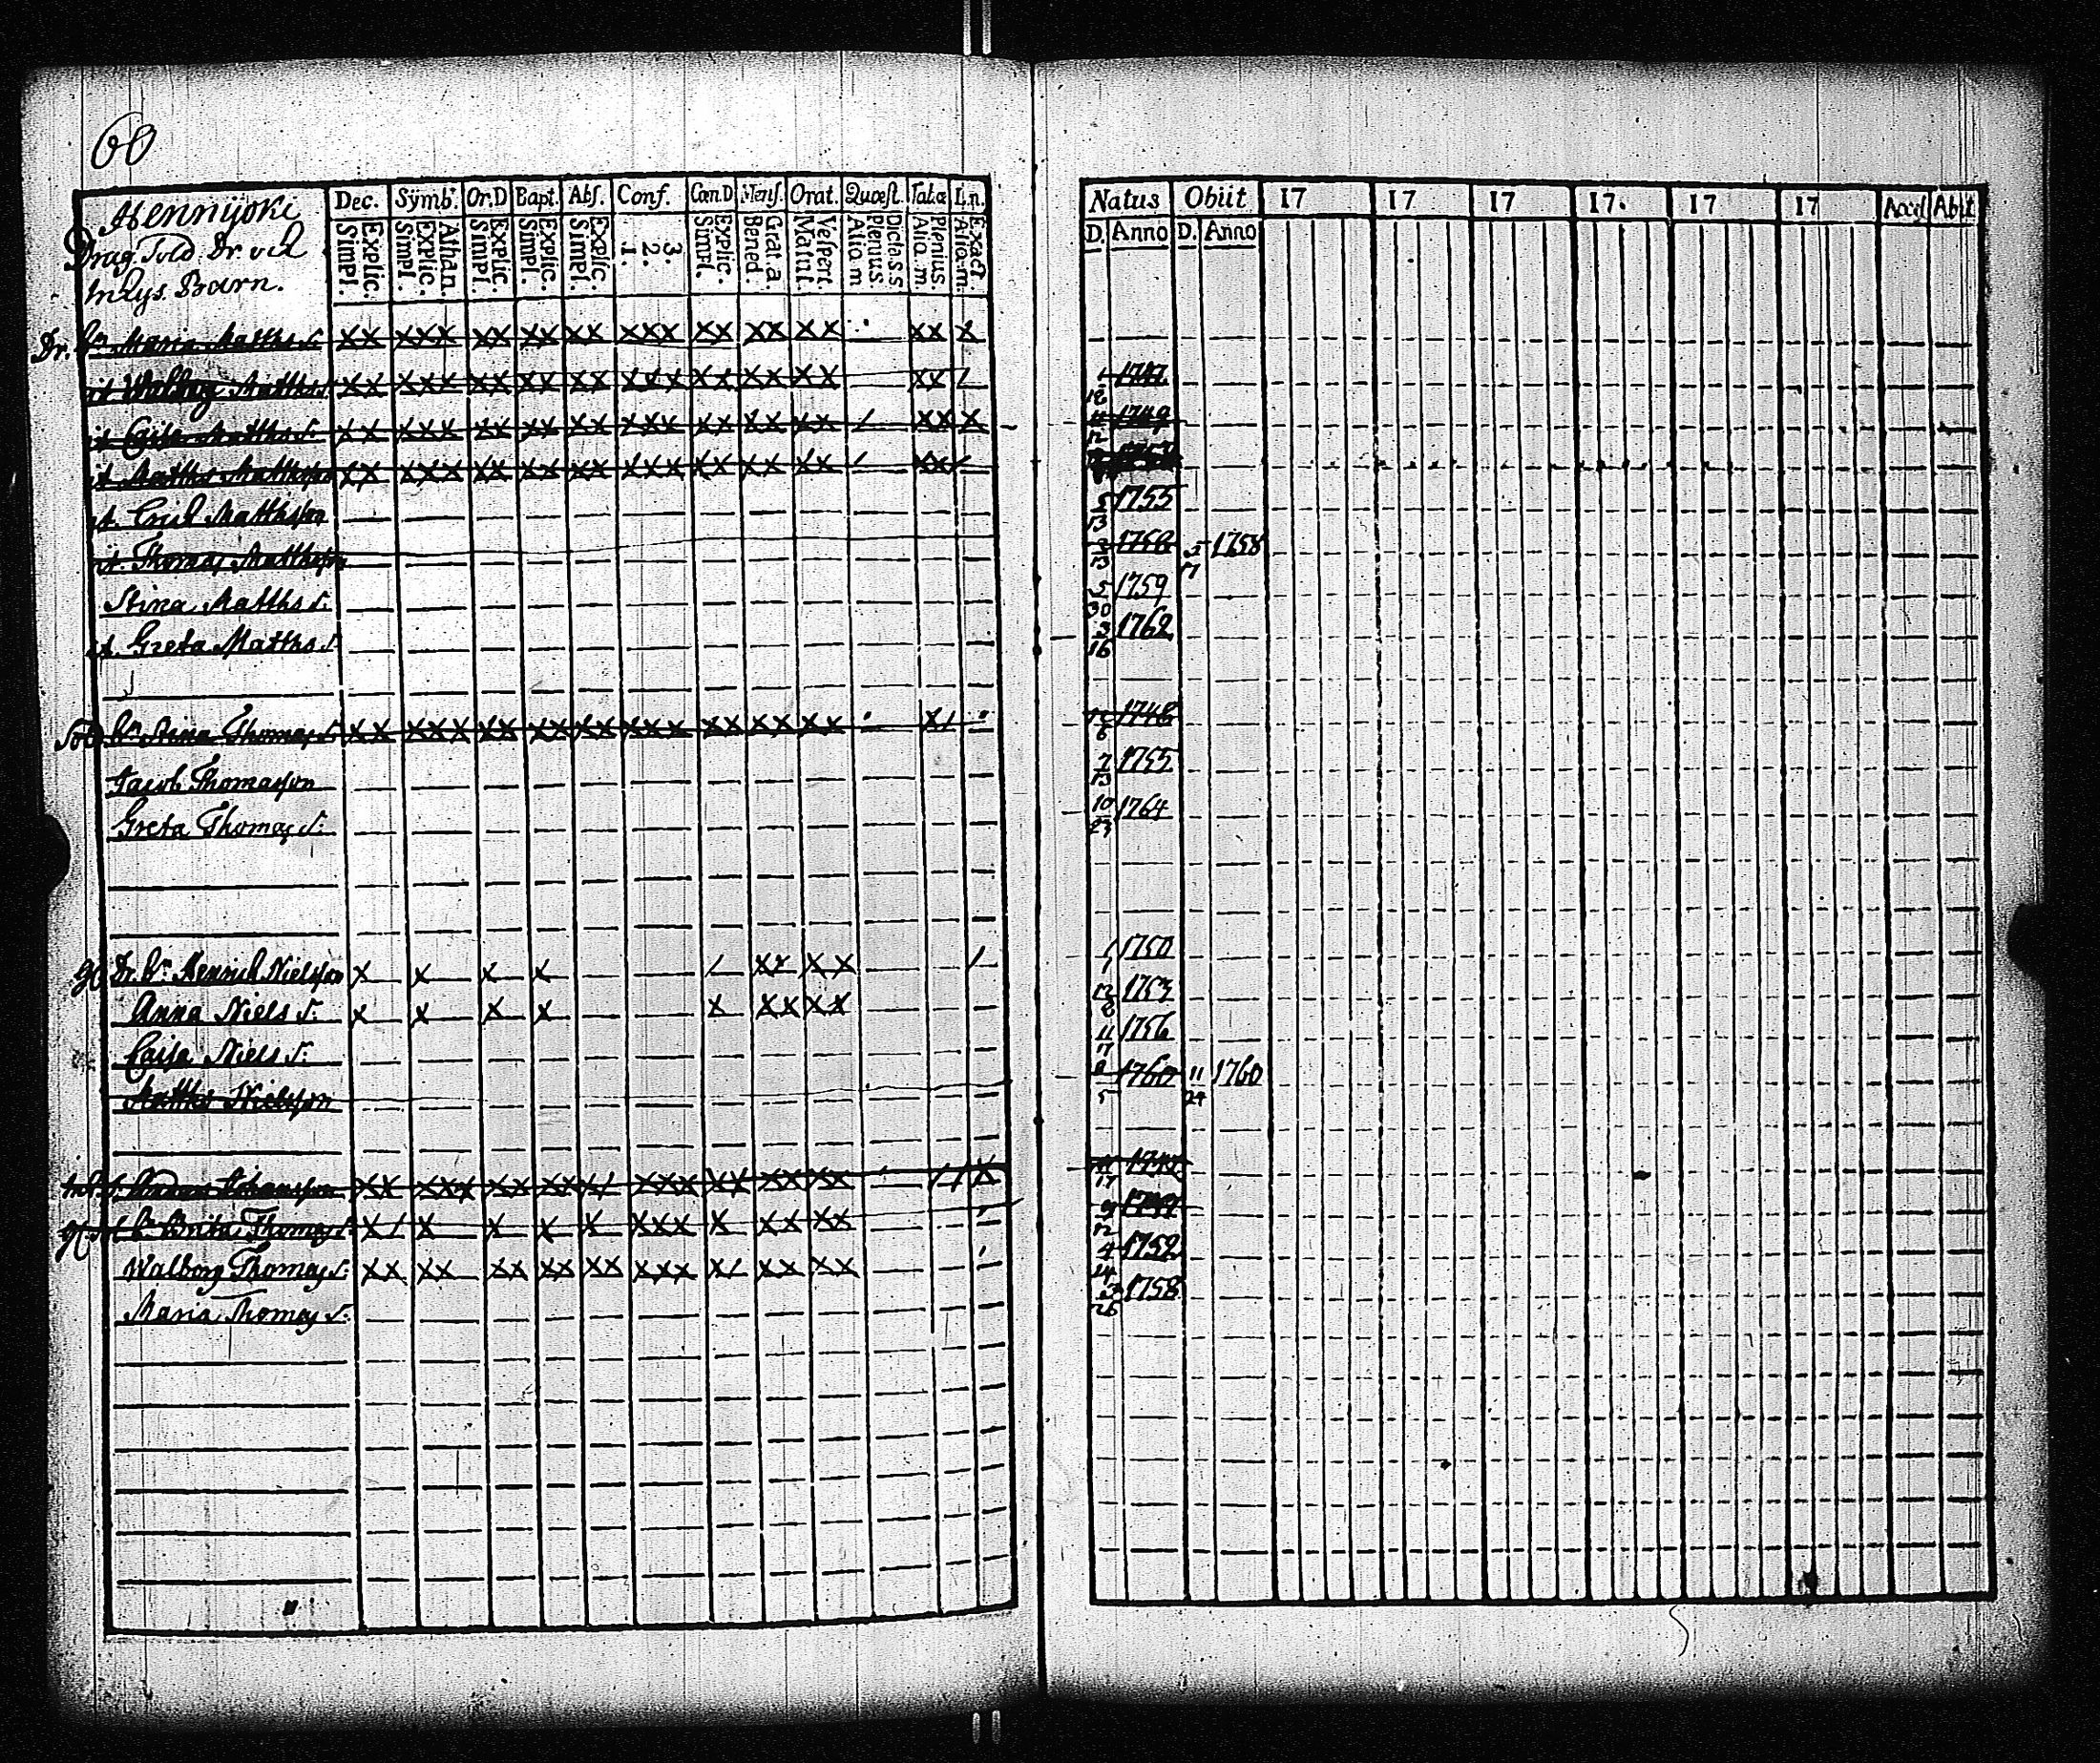 60
Hennijoki
Drag. Sold. Dr. och
Inhys. Barn.
Dec. Symb. Or.D Bapt. Abs. Conf. Cœn.D Mens. Orat. Quæst. Tab.œ L.n.
Simpl. Explic. Simpl. Explic. Athan. Simpl. Explic. Simpl. Explic. Simpl. Explic. 1. 2. 3. Simpl. Explic. Bened. Grat.a. Matut. Vespert. Alio.m Plenius. Dicta.s.s Alio.m. Plenius. Alio.m. Exact.
Natus Obiit 17 17 17 17. 17 17 Acceß Abit
D. Anno D. Anno
Dr. Bn Maria Matths d.
it Walborg Matths d. 1 18 1747
it Caisa Matths d. 11 12 1749
it Matths Mattsson
it. Erich Matthsson 5 13 1755
it. Thomas Matthsson 1758 5 17 1758
Stina Matths d. 5 30 1759
it. Greta Matths d. 3 16 1762
Sold. Bn Stina Thomas d. 6 1748
Jacob Thomasson 7 13 1755
Greta Thomas d. 10 23 1764
Dr. Bn Henrich Nielsson 1 1 1750
Anna Niels d. 12 8 1753
Caisa Niels d. 11 17 1756
Matths Nielsson 8 5 1760 11 24 1760
Johansson 17
Bn Brita Thomas d. 9 12
Walborg Thomas d. 4 14 1752
Maria Thomas d. 3 26 1758